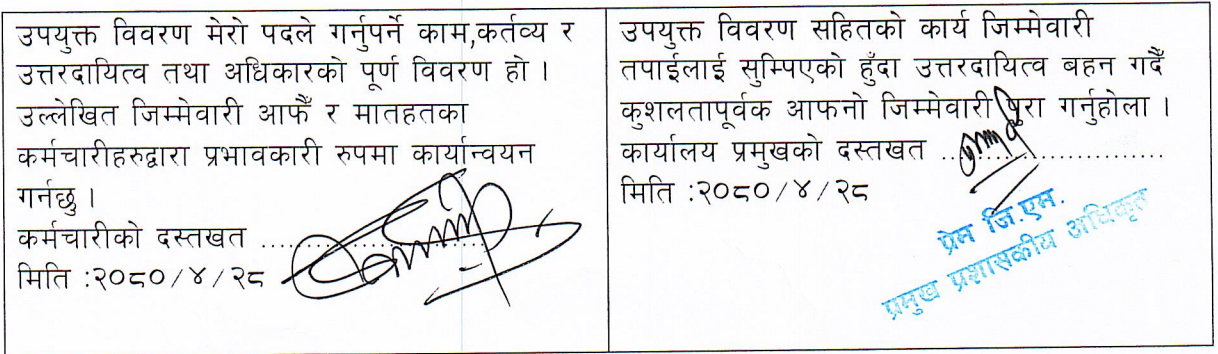 उपयुक्त विवरण मेरो पदले गर्नुपर्ने काम,कर्तव्य र
उत्तरदायित्व तथा अधिकारको पूर्ण विवरण हो ।
उल्लेखित जिम्मेवारी आफैँ र मातहतका
कर्मचारीहरुद्वारा प्रभावकारी रुपमा कार्यान्वयन
गर्नेछु ।
कर्मचारीको दस्तखत ..............................
मिति :२०८०/४/२८
उपयुक्त विवरण सहितको कार्य जिम्मेवारी
तपाईलाई सुम्पिएको हुँदा उत्तरदायित्व बहन गर्दै
कुशलतापूर्वक आफनो जिम्मेवारी पुरा गर्नुहोला ।
कार्यालय प्रमुखको दस्तखत ..............................
मिति :२०८०/४/२८
प्रेम जि.एम.
प्रमुख प्रशासकीय अधिकृत